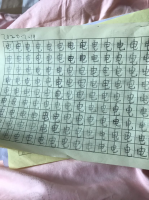 电电电电电电电电电电电
电电电电电电电电电电电
电电电电电电电电电电电
电电电电电电电电电电电
电电电电电电电电电电电
电电电电电电电电电电电
电电电电电电电电电电电
电电电电电电电电电电电
电电电电电电电电电电电